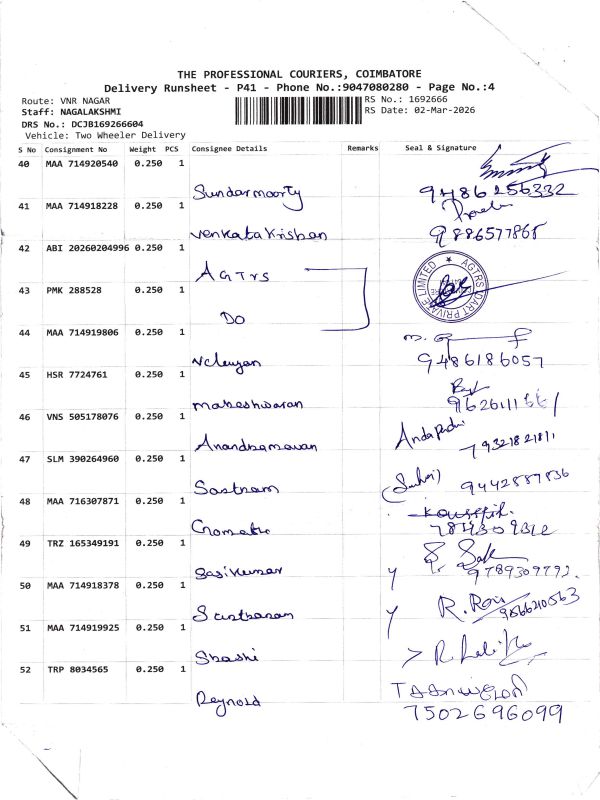 THE PROFESSIONAL COURIERS, COIMBATORE
Delivery Runsheet - P41 - Phone No.:9047080280 - Page No.:4
Route: VNR NAGAR
RS No.: 1692666
Staff: NAGALAKSHMI
RS Date: 02-Mar-2026
DRS No.: DCJB169266604
Vehicle: Two Wheeler Delivery
S No Consignment No Weight PCS Consignee Details Remarks Seal & Signature
40 MAA 714920540 0.250 1
Sundarmoorty 9486256332
41 MAA 714918228 0.250 1
Venkatakrishan 9886577865
42 ABI 20260204996 0.250 1
AGTRS
AGTRS DART PRIVATE LIMITED
43 PMK 288528 0.250 1
DO
44 MAA 714919806 0.250 1
9486186057
45 HSR 7724761 0.250 1
maheshwaran
46 VNS 505178076 0.250 1
79321821811
47 SLM 390264960 0.250 1
Sastram 9442887836
48 MAA 716307871 0.250 1
49 TRZ 165349191 0.250 1
Sasikumar 9789309792.
50 MAA 714918378 0.250 1
51 MAA 714919925 0.250 1
Shashi
52 TRP 8034565 0.250 1
Reynold 7502696099